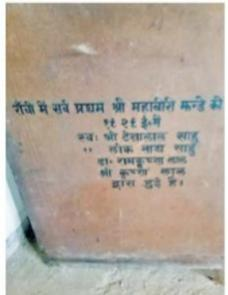 राँची में सर्व प्रथम श्री महावीरी झन्डे की
१९२९ ई॰ में
स्व॰ श्री टेसालाल साहु
" लोक नाथ साहु
डा॰ रामकृष्णा लाल
श्री कृष्णा लाल
द्वारा हुई है।